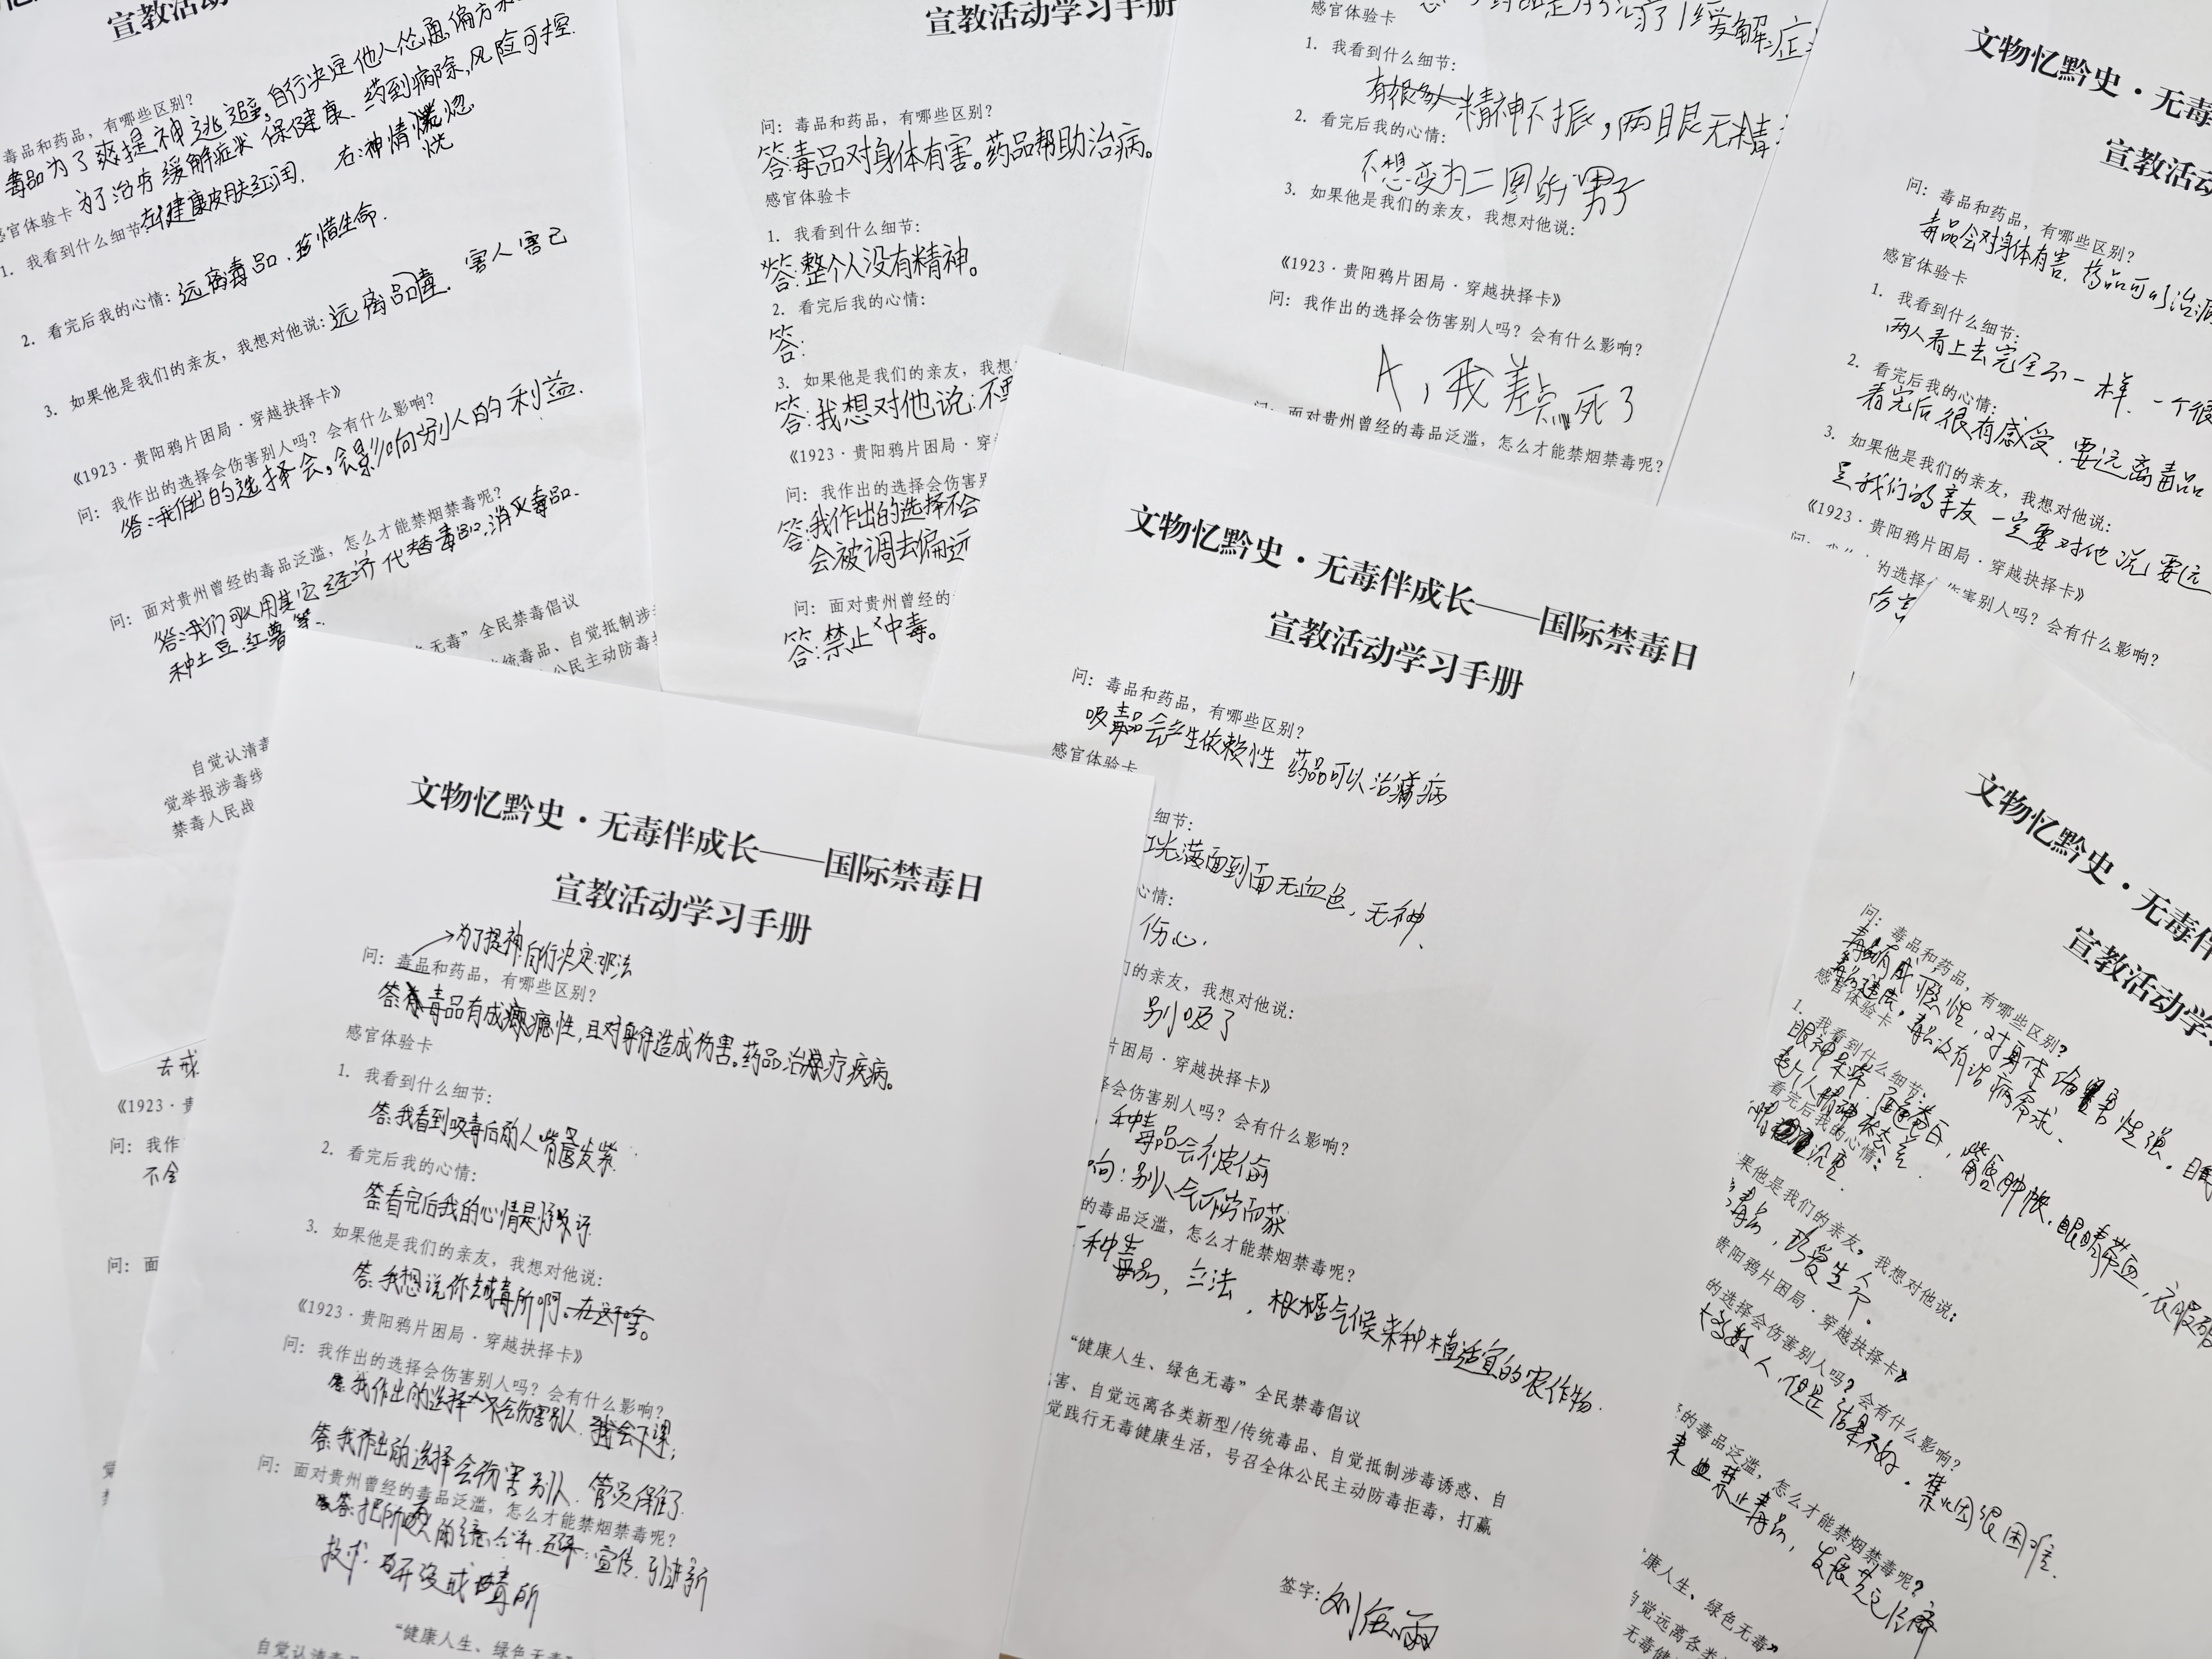 宣教活动学习手册
毒品和药品，有哪些区别？
毒品为了爽提神逃避,自行决定他人怂恿,偏方
为了治疗缓解症状 保健康、药到病除,风险可控.
感官体验卡
1. 我看到什么细节:
左健康皮肤红润. 右:神情
2. 看完后我的心情:
远离毒品.珍惜生命.
3. 如果他是我们的亲友，我想对他说:
远离品毒. 害人害己
《1923·贵阳鸦片困局·穿越抉择卡》
问: 我作出的选择会伤害别人吗？会有什么影响？
答:我作出的选择会,会影响别人的利益.
问: 面对贵州曾经的毒品泛滥，怎么才能禁烟禁毒呢？
答:我们可以用其它经济代替毒品.消灭毒品.
种土豆.红薯等.
无毒”全民禁毒倡议
统毒品、自觉抵制涉
公民主动防毒
自觉认清毒
觉举报涉毒线
禁毒人民战
宣教活动学习手册
问: 毒品和药品，有哪些区别？
答:毒品对身体有害。药品帮助治病。
感官体验卡
1. 我看到什么细节:
答:整个人没有精神。
2. 看完后我的心情:
答:
3. 如果他是我们的亲友，我想
答:我想对他说:不要
《1923·贵阳鸦片困局·穿
问: 我作出的选择会伤害别
答:我作出的选择不会
会被调去偏远
问: 面对贵州曾经的
答:禁止“中毒。
药品是为了治疗/缓解症
感官体验卡
1. 我看到什么细节:
有很多人精神不振,两眼无精
2. 看完后我的心情:
不想变为二图的男子
3. 如果他是我们的亲友，我想对他说:
《1923·贵阳鸦片困局·穿越抉择卡》
问: 我作出的选择会伤害别人吗？会有什么影响？
A,我差点死了
问: 面对贵州曾经的毒品泛滥，怎么才能禁烟禁毒呢？
文物忆黔史·无毒
宣教活动
问: 毒品和药品，有哪些区别？
毒品会对身体有害.药品可以治病
感官体验卡
1. 我看到什么细节:
两人看上去完全不一样.一个很
2. 看完后我的心情:
看完后很有感受.要远离毒品
3. 如果他是我们的亲友，我想对他说:
是我们的亲友一定要对他说要远
《1923·贵阳鸦片困局·穿越抉择卡》
的选择 伤害别人吗？会有什么影响？
文物忆黔史·无毒伴成长——国际禁毒日
宣教活动学习手册
问: 毒品和药品，有哪些区别？
吸毒品会产生依赖性 药品可以治病
感官体验卡
细节:
光满面到面无血色,无神、
心情:
伤心.
们的亲友，我想对他说:
别吸了
片困局·穿越抉择卡》
择会伤害别人吗？会有什么影响？
种毒品会被偷
响:别人会不劳而获
的毒品泛滥，怎么才能禁烟禁毒呢？
种毒品, 立法,根据气候来种植适宜的农作物.
“健康人生、绿色无毒”全民禁毒倡议
害、自觉远离各类新型/传统毒品、自觉抵制涉毒诱惑、自
觉践行无毒健康生活，号召全体公民主动防毒拒毒，打赢
签字:
文物忆黔史·无毒伴成长——国际禁毒日
宣教活动学习手册
为了提神:自行决定:非法
问: 毒品和药品，有哪些区别？
答:毒品有成瘾性,且对身体造成伤害。药品治疗疾病。
感官体验卡
1. 我看到什么细节:
答:我看到吸毒后的人嘴唇发紫.
2. 看完后我的心情:
答看完后我的心情是
3. 如果他是我们的亲友，我想对他说:
答:我想说你去戒毒所啊。在这干啥。
《1923·贵阳鸦片困局·穿越抉择卡》
问: 我作出的选择会伤害别人吗？会有什么影响？
我作出的选择不会伤害别人.我会下课;
答:我作出的选择会伤害别人.
问: 面对贵州曾经的毒品泛滥，怎么才能禁烟禁毒呢？
宣传.引进新
技术.开设戒毒所
“健康人生、绿色无毒
自觉认清毒品
去戒
《1923·贵
问: 我作
不会
问: 面
文物忆黔史·无毒伴
宣教活动学
问: 毒品和药品，有哪些区别？
毒品有成瘾性,对身体伤害性强.
毒品违法,毒品没有治病需求.
感官体验卡
1. 我看到什么细节:
眼神呆滞.面色苍白,嘴唇肿胀.眼睛带血,衣服破
整个人精神状态差.
看完后我的心情:
沉重.
果他是我们的亲友，我想对他说:
毒品,珍爱生命.
贵阳鸦片困局·穿越抉择卡》
的选择会伤害别人吗？会有什么影响？
大多数人,但是结果不好.禁烟很困难.
的毒品泛滥，怎么才能禁烟禁毒呢？
来禁止毒品,发展其它经济
康人生、绿色无毒”
自觉远离各类
无毒健